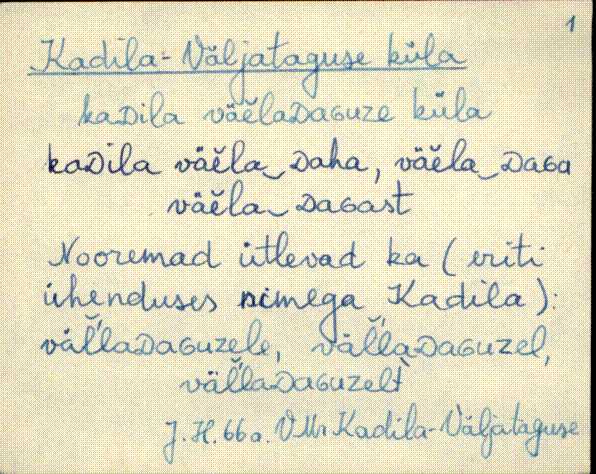 1
Kadila-Väljataguse küla
kaDila väĕlaDaGuze küla
kaDila väĕla‿Daha, väĕla‿DaGa
väĕla‿DaGast
Nooremad ütlevad ka (eriti
ühenduses nimega Kadila):
väl̆'l̆aDaGuzele, väl̆'l̆aDaGuzel,
väl̆'l̆aDaGuzelt
J. H. 66 a. VMr Kadila-Väljataguse